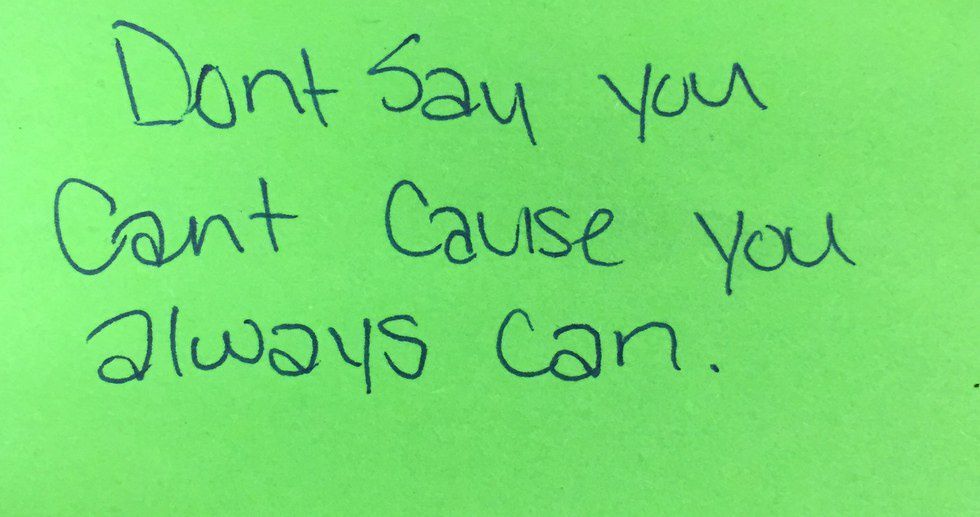 Dont Say you
Cant Cause you
always can.